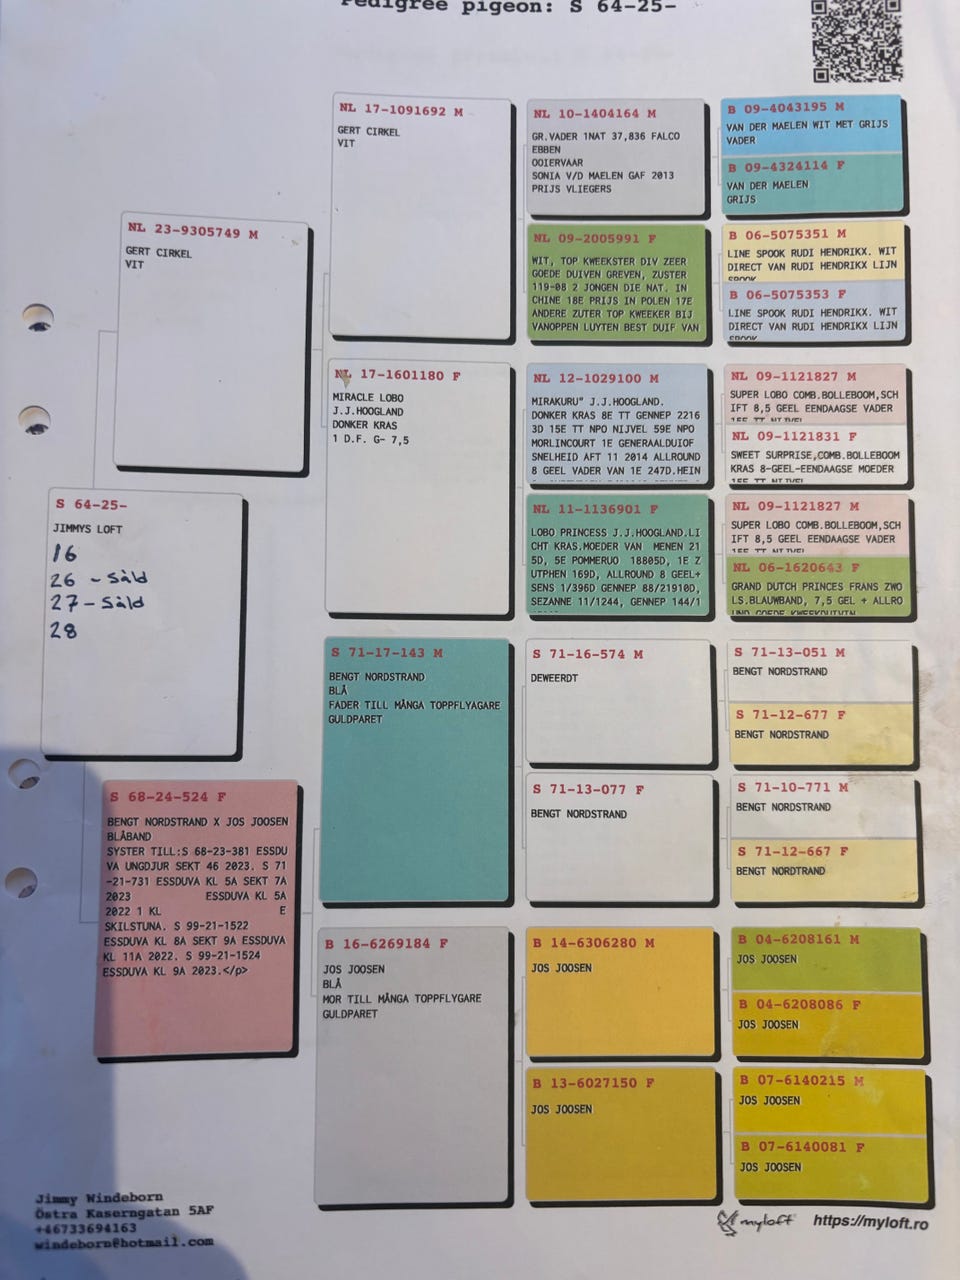 Pedigree pigeon: S 64-25-
NL 23-9305749 M
GERT CIRKEL
VIT
S 64-25-
JIMMYS LOFT
16
26 - Såld
27 - Såld
28
S 68-24-524 F
BENGT NORDSTRAND X JOS JOOSEN
BLÅBAND
SYSTER TILL:S 68-23-381 ESSDU
VA UNGDJUR SEKT 46 2023. S 71
-21-731 ESSDUVA KL 5A SEKT 7A
2023 ESSDUVA KL 5A
2022 1 KL E
SKILSTUNA. S 99-21-1522
ESSDUVA KL 8A SEKT 9A ESSDUVA
KL 11A 2022. S 99-21-1524
ESSDUVA KL 9A 2023.</p>
NL 17-1091692 M
GERT CIRKEL
VIT
NL 17-1601180 F
MIRACLE LOBO
J.J.HOOGLAND
DONKER KRAS
1 D.F. G- 7,5
S 71-17-143 M
BENGT NORDSTRAND
BLÅ
FADER TILL MÅNGA TOPPFLYAGARE
GULDPARET
B 16-6269184 F
JOS JOOSEN
BLÅ
MOR TILL MÅNGA TOPPFLYGARE
GULDPARET
NL 10-1404164 M
GR.VADER 1NAT 37,836 FALCO
EBBEN
OOIERVAAR
SONIA V/D MAELEN GAF 2013
PRIJS VLIEGERS
NL 09-2005991 F
WIT, TOP KWEEKSTER DIV ZEER
GOEDE DUIVEN GREVEN, ZUSTER
119-08 2 JONGEN DIE NAT. IN
CHINE 18E PRIJS IN POLEN 17E
ANDERE ZUTER TOP KWEEKER BIJ
VANOPPEN LUYTEN BEST DUIF VAN
NL 12-1029100 M
MIRAKURU" J.J.HOOGLAND.
DONKER KRAS 8E TT GENNEP 2216
3D 15E TT NPO NIJVEL 59E NPO
MORLINCOURT 1E GENERAALDUIOF
SNELHEID AFT 11 2014 ALLROUND
8 GEEL VADER VAN 1E 247D.HEIN
NL 11-1136901 F
LOBO PRINCESS J.J.HOOGLAND.LI
CHT KRAS.MOEDER VAN MENEN 21
5D, 5E POMMERUO 18805D, 1E Z
UTPHEN 169D, ALLROUND 8 GEEL+
SENS 1/396D GENNEP 88/21910D,
SEZANNE 11/1244, GENNEP 144/1
S 71-16-574 M
DEWEERDT
S 71-13-077 F
BENGT NORDSTRAND
B 14-6306280 M
JOS JOOSEN
B 13-6027150 F
JOS JOOSEN
B 09-4043195 M
VAN DER MAELEN WIT MET GRIJS
VADER
B 09-4324114 F
VAN DER MAELEN
GRIJS
B 06-5075351 M
LINE SPOOK RUDI HENDRIKX. WIT
DIRECT VAN RUDI HENDRIKX LIJN
SPOOK
B 06-5075353 F
LINE SPOOK RUDI HENDRIKX. WIT
DIRECT VAN RUDI HENDRIKX LIJN
SPOOK
NL 09-1121827 M
SUPER LOBO COMB.BOLLEBOOM,SCH
IFT 8,5 GEEL EENDAAGSE VADER
15E TT NIJVEL
NL 09-1121831 F
SWEET SURPRISE,COMB.BOLLEBOOM
KRAS 8-GEEL-EENDAAGSE MOEDER
15E TT NIJVEL
NL 09-1121827 M
SUPER LOBO COMB.BOLLEBOOM,SCH
IFT 8,5 GEEL EENDAAGSE VADER
15E TT NIJVEL
NL 06-1620643 F
GRAND DUTCH PRINCES FRANS ZWO
LS.BLAUWBAND, 7,5 GEL + ALLRO
UND GOEDE
S 71-13-051 M
BENGT NORDSTRAND
S 71-12-677 F
BENGT NORDSTRAND
S 71-10-771 M
BENGT NORDSTRAND
S 71-12-667 F
BENGT NORDTRAND
B 04-6208161 M
JOS JOOSEN
B 04-6208086 F
JOS JOOSEN
B 07-6140215 M
JOS JOOSEN
B 07-6140081 F
JOS JOOSEN
Jimmy Windeborn
Östra Kaserngatan 5AF
+46733694163
windeborn@hotmail.com
myloft https://myloft.ro